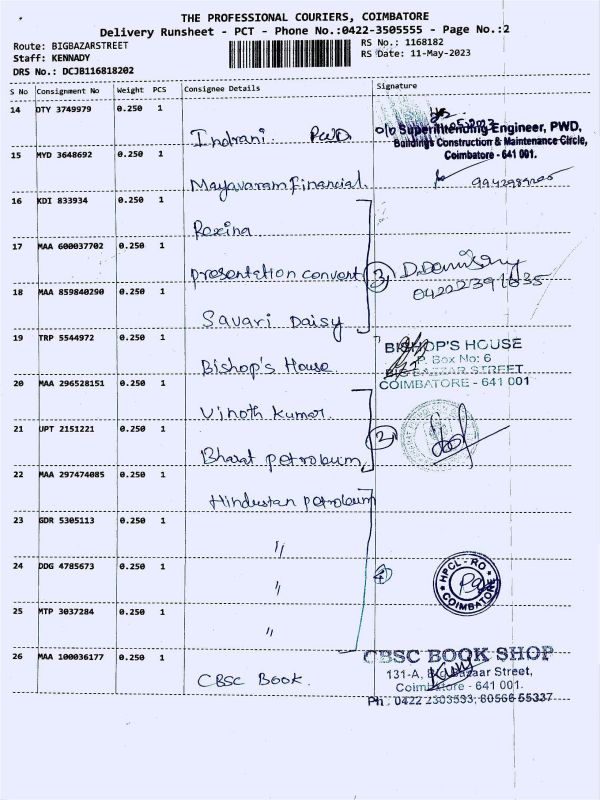 THE PROFESSIONAL COURIERS, COIMBATORE
Delivery Runsheet - PCT - Phone No.:0422-3505555 - Page No.:2
Route: BIGBAZARSTREET
RS No.: 1168182
Staff: KENNADY
RS Date: 11-May-2023
DRS No.: DCJB116818202
S No Consignment No Weight PCS Consignee Details Signature
14 DTY 3749979 0.250 1
Indrani PWD
o/o Superintending Engineer, PWD,
Buildings Construction & Maintenance Circle,
Coimbatore - 641 001.
15 MYD 3648692 0.250 1
Mayavaram Financial
16 KDI 833934 0.250 1
Rexina
17 MAA 600037702 0.250 1
presentation convent 3
18 MAA 859840290 0.250 1
Savari Daisy
19 TRP 5544972 0.250 1
Bishop's House
BISHOP'S HOUSE
P. Box No: 6
BIG BAZZAR STREET
COIMBATORE - 641 001
20 MAA 296528151 0.250 1
Vinoth kumar
21 UPT 2151221 0.250 1
Bharat petroluum 2
22 MAA 297474085 0.250 1
Hindustan petroleum
23 GDR 5305113 0.250 1
"
24 DDG 4785673 0.250 1
" 4
HPCL - RO
COIMBATORE
25 MTP 3037284 0.250 1
"
26 MAA 100036177 0.250 1
CBSC Book.
CBSC BOOK SHOP
131-A, Big Bazaar Street,
Coimbatore - 641 001.
Ph : 0422 2303533, 80566 55337